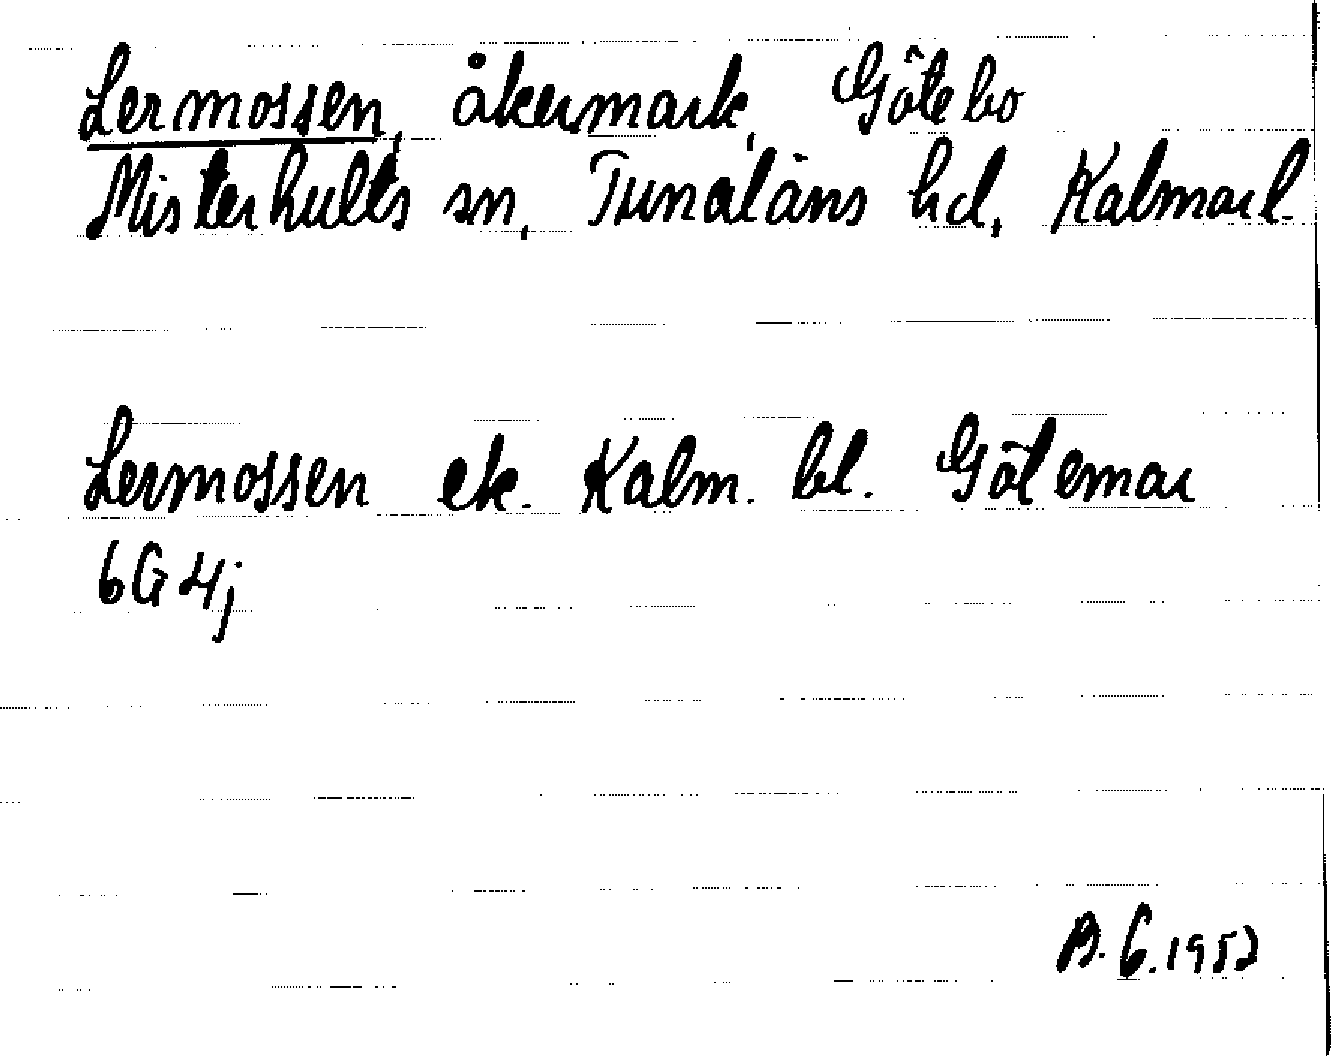 Lermossen, åkermark, Götebo
Misterhults sn, Tunaläns hd, Kalmar l.
Lermossen ek. Kalm. bl. Götemar
6G 4j
B. G. 1952